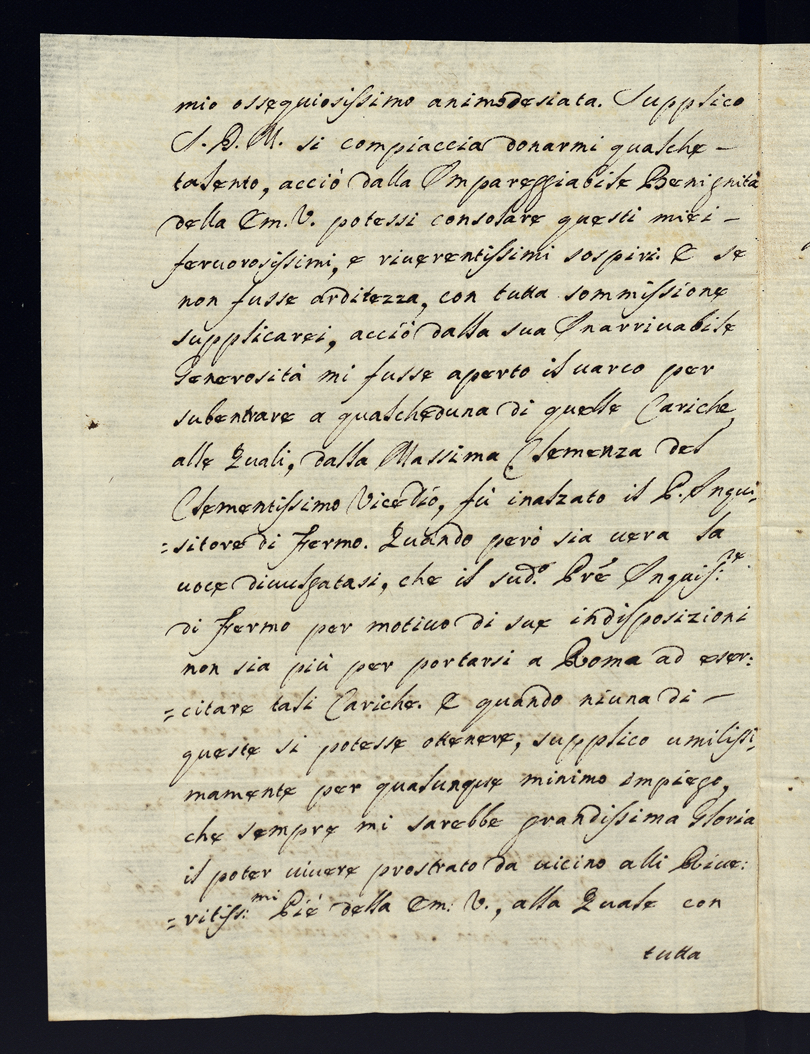 mio ossequiosissimo animo desiata. Supplico
S. D. M. si compiaccia donarmi qualche –
talento, acciò dalla Impareggiabile Benignità
della Em. V. potessi consolare questi miei –
fervorosissimi, e riverentissimi sospiri. E se
non fusse arditezza, con tutta sommissione
supplicarei, acciò dalla sua Inarrivabile
Generosità mi fusse aperto il varco per
subentrare a qualcheduna di quelle Cariche,
alle Quali, dalla Massima Clemenza del
Clementissimo Vicedio, fù inalzato il P. Inqui=
=sitore di Fermo. Quando però sia vera la
voce divulgatasi, che il sud.º Pre Inquis:re
di Fermo per motivo di sue indisposizioni
non sia più per portarsi a Roma ad eser=
=citare tali Cariche. E quando niuna di –
queste si potesse ottenere, supplico umilissi=
mamente per qualunque minimo impiego,
che sempre mi sarebbe grandissima Gloria
il poter vivere prostrato da vicino alli Rive:
=ritiss:mi Piè della Em: V., alla Quale con
tutta